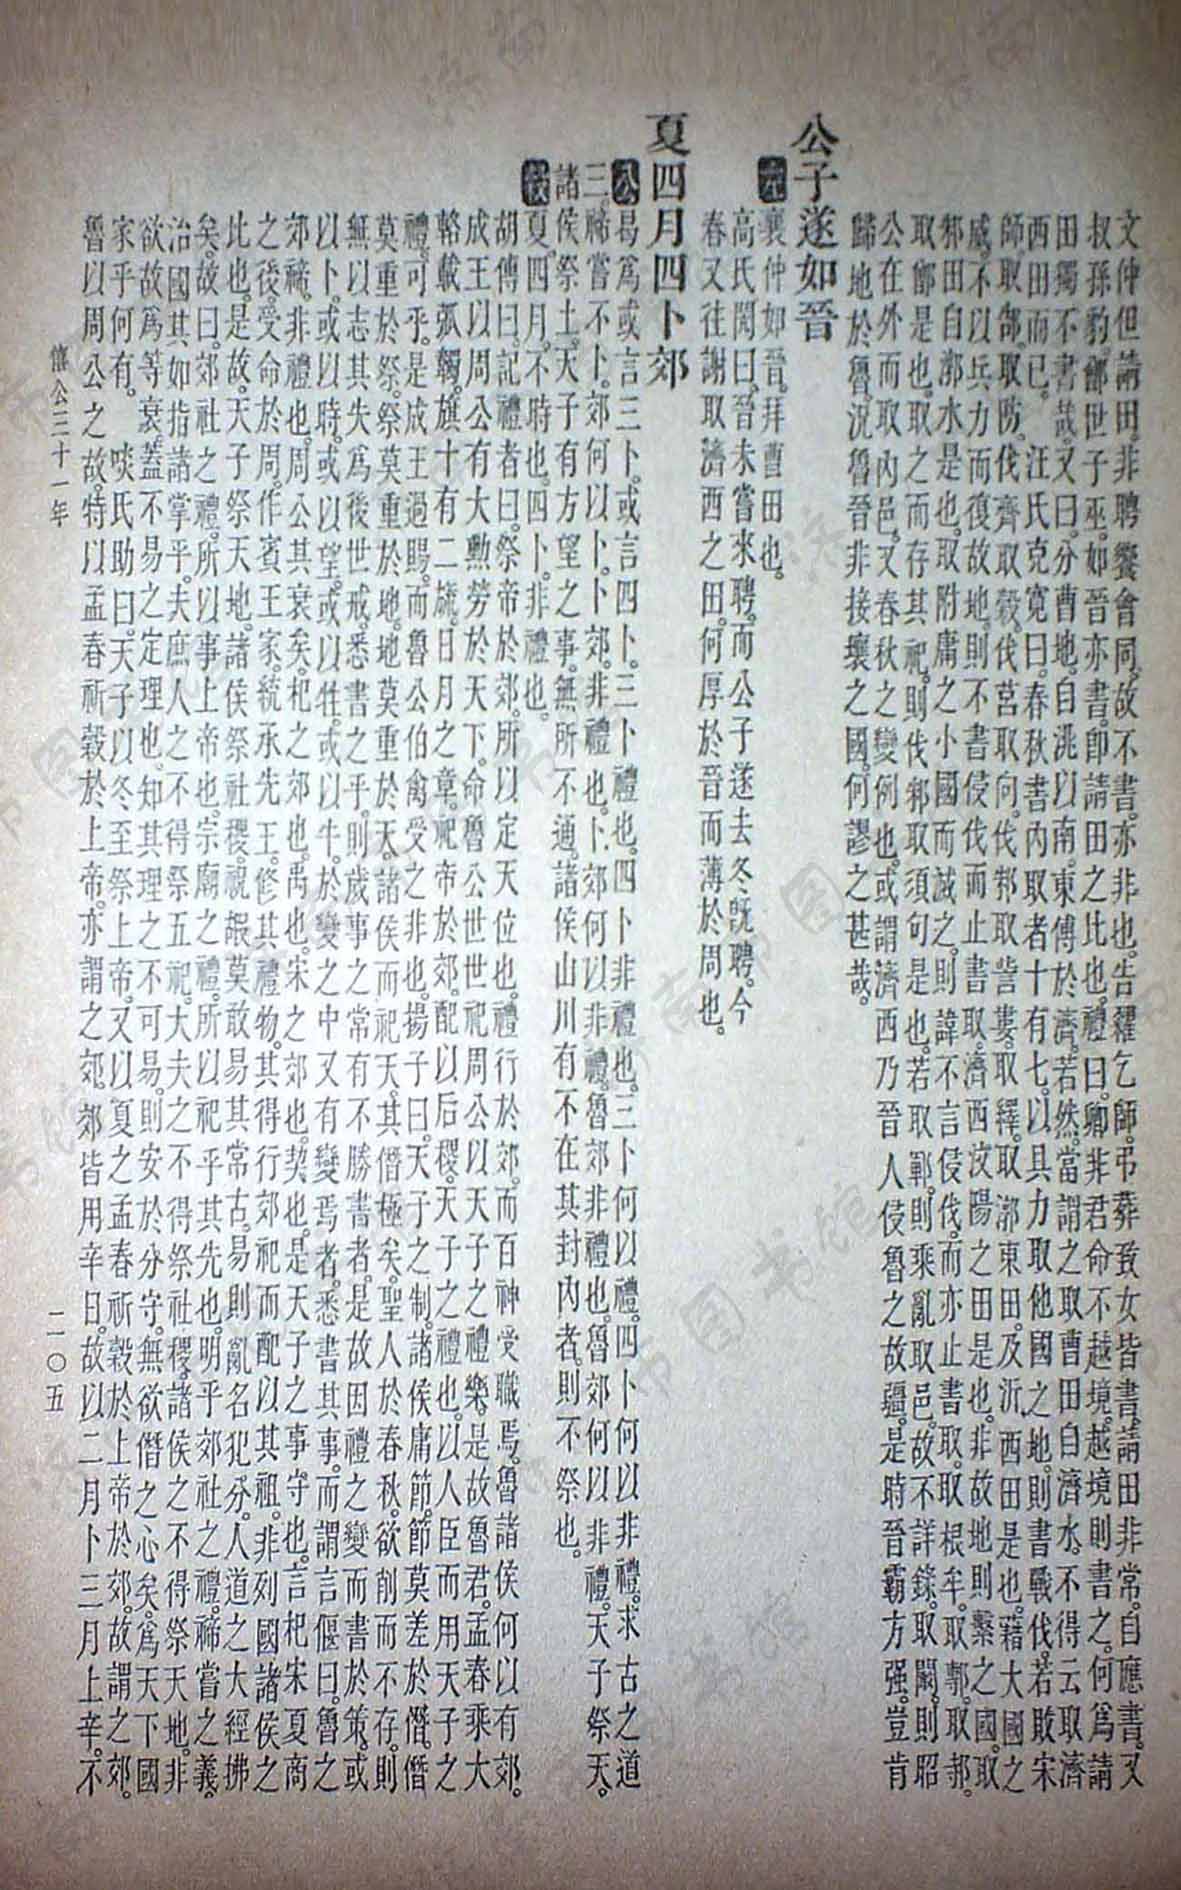 文仲但請田。非聘饗會同。故不書。亦非也。告糴乞師。弔葬致女皆書。請田非常。自應書。又
叔孫豹。鄫世子巫。如晉亦書。即請田之比也。禮曰。卿非君命不越境。越境則書之。何爲請
田獨不書哉。又曰。分曹地。自洮以南。東傅於濟。若然。當謂之取曹田自濟水。不得云取濟
西田而已。　汪氏克寬曰。春秋書內取者十有七。以其力取他國之地。則書戰伐。若敗宋
師。取郜。取防。伐齊取穀。伐莒取向。伐邾取訾婁。取繹。取漷東田。及沂西田是也。藉大國之
威。不以兵力而復故地。則不書侵伐而止書取。濟西汶陽之田是也。非故地則繫之國。取
邾田自漷水是也。取附庸之小國而滅之。則諱不言侵伐。而亦止書取。取根牟。取鄟。取邿。
取鄫是也。取之而存其祀。則伐邾取須句是也。若取鄆。則乘亂取邑。故不詳錄。取闞。則昭
公在外而取內邑。又春秋之變例也。或謂濟西乃晉人侵魯之故疆。是時晉霸方强。豈肯
歸地於魯。況魯晉非接壤之國。何謬之甚哉。
公子遂如晉
左 襄仲如晉。拜曹田也。
高氏閌曰。晉未嘗來聘。而公子遂去冬旣聘。今
春又往謝取濟西之田。何厚於晉而薄於周也。
夏四月四卜郊
公 曷爲或言三卜。或言四卜。三卜禮也。四卜非禮也。三卜何以禮。四卜何以非禮。求吉之道
三。禘嘗不卜。郊何以卜。卜郊。非禮也。卜郊何以非禮。魯郊非禮也。魯郊何以非禮。天子祭天。
諸侯祭土。天子有方望之事。無所不通。諸侯山川有不在其封內者。則不祭也。
榖 夏四月。不時也。四卜。非禮也。
胡傳曰。記禮者曰。祭帝於郊。所以定天位也。禮行於郊。而百神受職焉。魯諸侯何以有郊。
成王以周公有大勳勞於天下。命魯公世世祀周公以天子之禮樂。是故魯君。孟春乘大
輅。載弧韣。旗十有二旒。日月之章。祀帝於郊。配以后稷。天子之禮也。以人臣而用天子之
禮。可乎。是成王過賜。而魯公伯禽受之非也。揚子曰。天子之制。諸侯庸節。節莫差於僭。僭
莫重於祭。祭莫重於地。地莫重於天。諸侯而祀天。其僭極矣。聖人於春秋。欲削而不存。則
無以志其失爲後世戒。悉書之乎。則歲事之常有不勝書者。是故因禮之變而書於策。或
以卜。或以時。或以望。或以牲。或以牛。於變之中又有變焉者。悉書其事。而謂言偃曰。魯之
郊禘。非禮也。周公其衰矣。杞之郊也。禹也。宋之郊也。契也。是天子之事守也。言杞宋夏商
之後。受命於周。作賓王家。統承先王。修其禮物。其得行郊祀而配以其祖。非列國諸侯之
比也。是故天子祭天地。諸侯祭社稷。祝嘏莫敢易其常古。易則亂名犯分。人道之大經拂
矣。故曰。郊社之禮。所以事上帝也。宗廟之禮。所以祀乎其先也。明乎郊社之禮。禘嘗之義。
治國其如指諸掌乎。夫庶人之不得祭五祀。大夫之不得祭社稷。諸侯之不得祭天地。非
欲故爲等衰。蓋不易之定理也。知其理之不可易。則安於分守。無欲僭之心矣。爲天下國
家乎何有。　啖氏助曰。天子以冬至祭上帝。又以夏之孟春祈穀於上帝於郊。故謂之郊。
魯以周公之故。特以孟春祈穀於上帝。亦謂之郊。郊皆用辛日。故以二月卜三月上辛。不
僖公三十一年　二一〇五